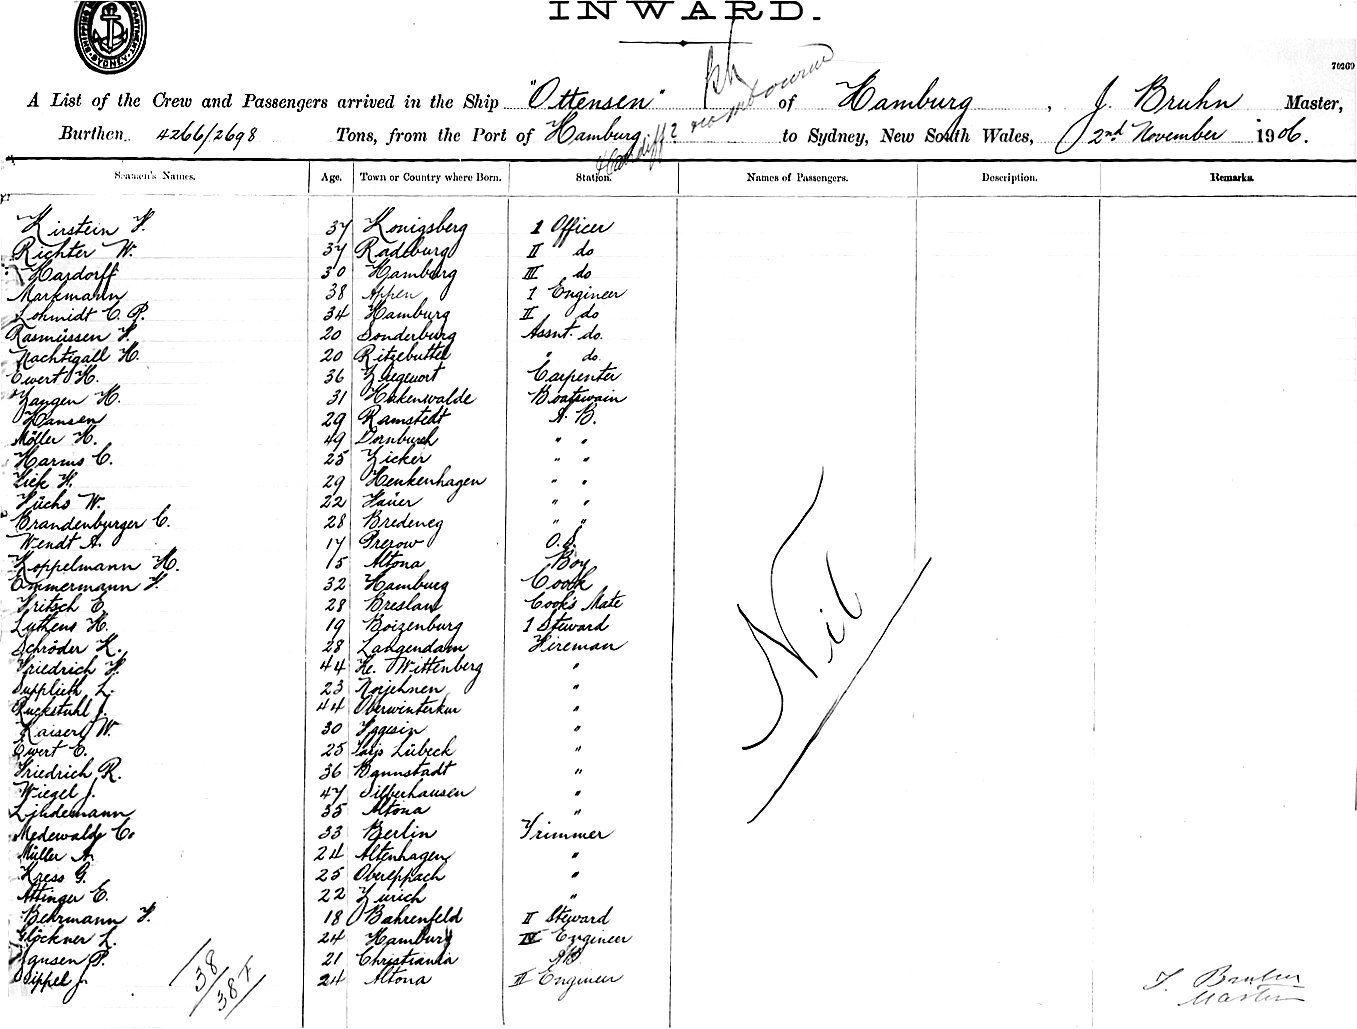 INWARD.
SYDNEY
70269
A List of the Crew and Passengers arrived in the Ship "Ottensen" of Hamburg, J. Bruhn Master,
Burthen 4266/2698 Tons, from the Port of Hamburg to Sydney, New South Wales, 2nd November 1906.
Seamen's Names. Age. Town or Country where Born. Station. Names of Passengers. Description. Remarks.
Kirstein F. 37 Konigsberg 1 Officer
Richter W. 37 Radeburg II do
Hardorff 30 Hamburg III do
Markmann 38 Appen 1 Engineer
Schmidt C. P. 34 Hamburg II do
Rasmüssen F. 20 Sonderburg Assnt. do.
Nachtigall H. 20 Ritzebuttel " do
Ewert H. 36 Ziegenort Carpenter
Zangen H. 31 Hakenwalde Boatswain
Hansen 29 Ramstedt A. B.
Möller H. 49 Dornbusch " "
Harms C. 25 Zicker " "
Ziek F. 29 Henkenhagen " "
Füchs W. 22 Hauer " "
Brandenburger C. 28 Bredeneg " "
Wendt A. 17 Prerow O.S.
Koppelmann H. 15 Altona Boy
Emmermann F. 32 Hamburg Cook
Fritsch E. 28 Breslau Cook's Mate
Luthens H. 19 Boizenburg 1 Steward
Schröder K. 28 Langendam Fireman
Friedrich F. 44 Kl. Wittenberg "
Supplieth L. 23 "
Ruckstuhl J. 44 Oberwinterkur "
Kaiser W. 30 Iggesin "
Ewert E. 25 Lübeck "
Friedrich R. 36 Bannstadt "
Wiegel J. 47 Silberhausen "
Lindemann 35 Altona "
Medewald C. 33 Berlin Trimmer
Müller A. 24 Altenhagen "
Kress G. 25 Obereppach "
Attinger E. 22 Zurich "
Behrmann F. 18 Bahrenfeld II Steward
Glöckner L. 24 Hamburg IV Engineer
Hansen P. 21 Christiania AB
Sippel J. 24 Altona II Engineer
Nil
38
38
J. Bruhn
Master